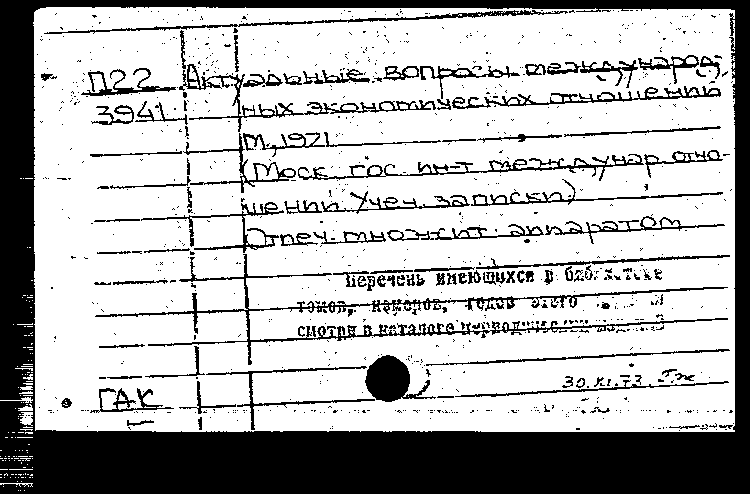 П22 Актуальные вопросы международ-
3941 ных экономических отношений
М., 1971
(Моск. гос. ин-т междунар. отно-
шений. Учен. записки)
Отпеч. множит. аппаратом
Перечень имеющихся в библиотеке
томов, номеров, годов этого
смотри в каталоге периодических изданий
ГАК
30.XI.73.